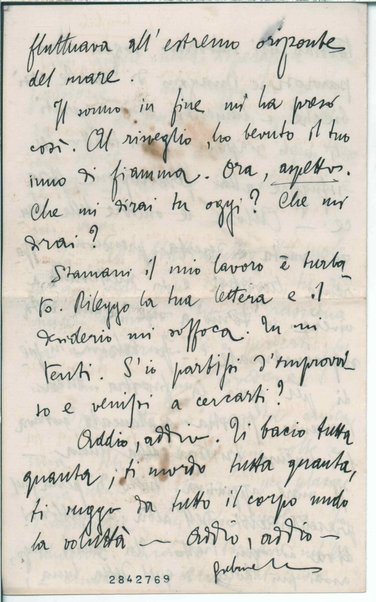 fluttuava all'estremo orizzonte
del mare.
Il sonno in fine mi ha preso
così. Al risveglio, ho bevuto il tuo
inno di fiamma. Ora, aspetto.
Che mi dirai tu oggi? Che mi
dirai?
Stamani il mio lavoro è turba-
to. Rileggo la tua lettera e il
desiderio mi soffoca. Tu mi
tenti. S'io partissi d'improvvi-
so e venissi a cercarti?
Addio, addio. Ti bacio tutta
quanta, ti mordo tutta quanta,
ti suggo da tutto il corpo nudo
la voluttà — Addio, addio —
Gabriele
2842769